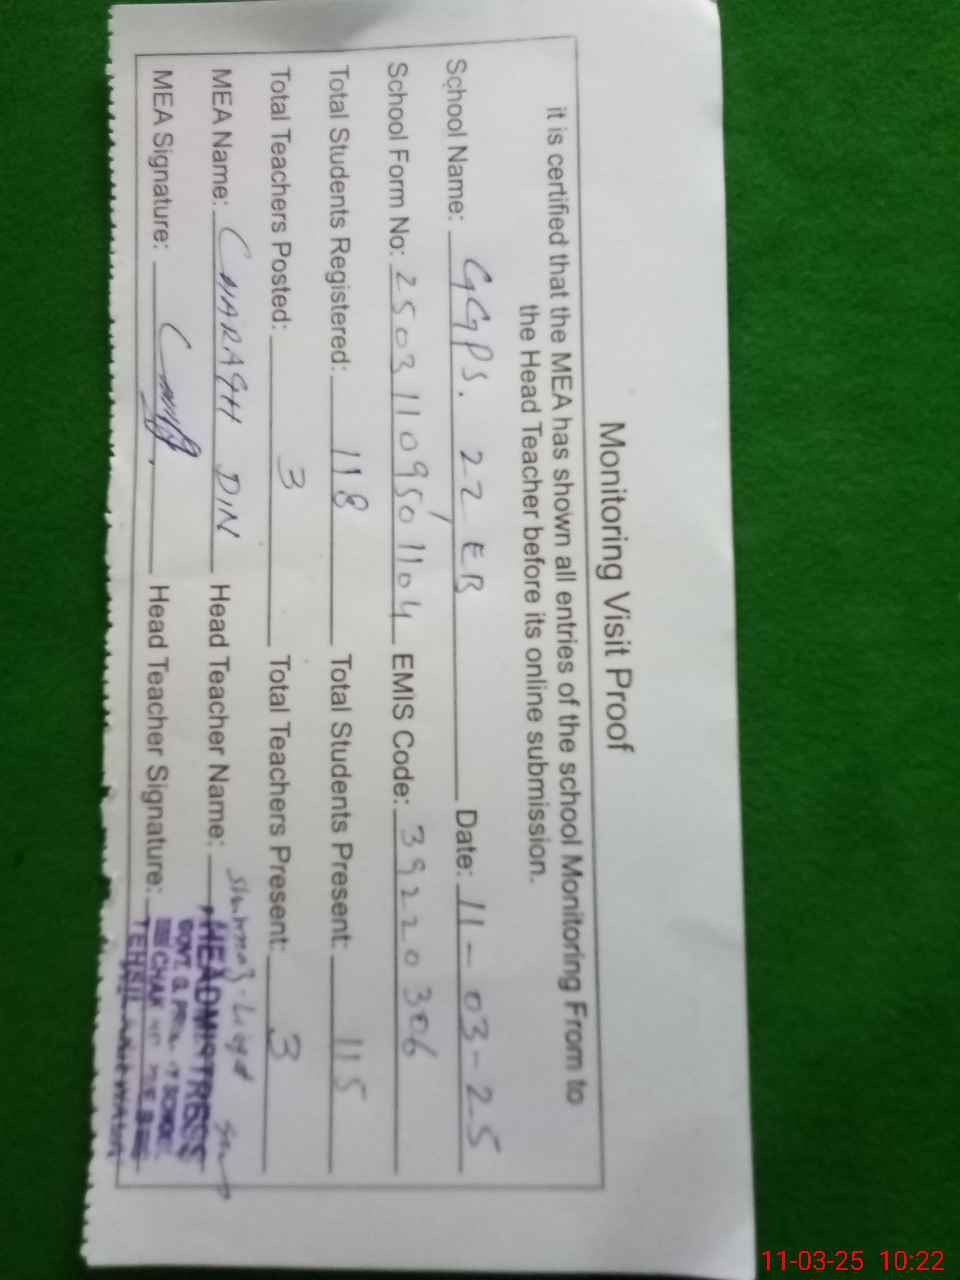 Monitoring Visit Proof
it is certified that the MEA has shown all entries of the school Monitoring From to
the Head Teacher before its online submission.
School Name: GGPS. 22 EB Date: 11-03-25
School Form No: 25031109501104 EMIS Code: 39220306
Total Students Registered: 118 Total Students Present: 115
Total Teachers Posted: 3 Total Teachers Present: 3
MEA Name: CHARAGH DIN Head Teacher Name:
MEA Signature: Head Teacher Signature:
HEADMISTRESS
GOVT. G. SCHOOL
CHAK
TEHSIL
11-03-25 10:22